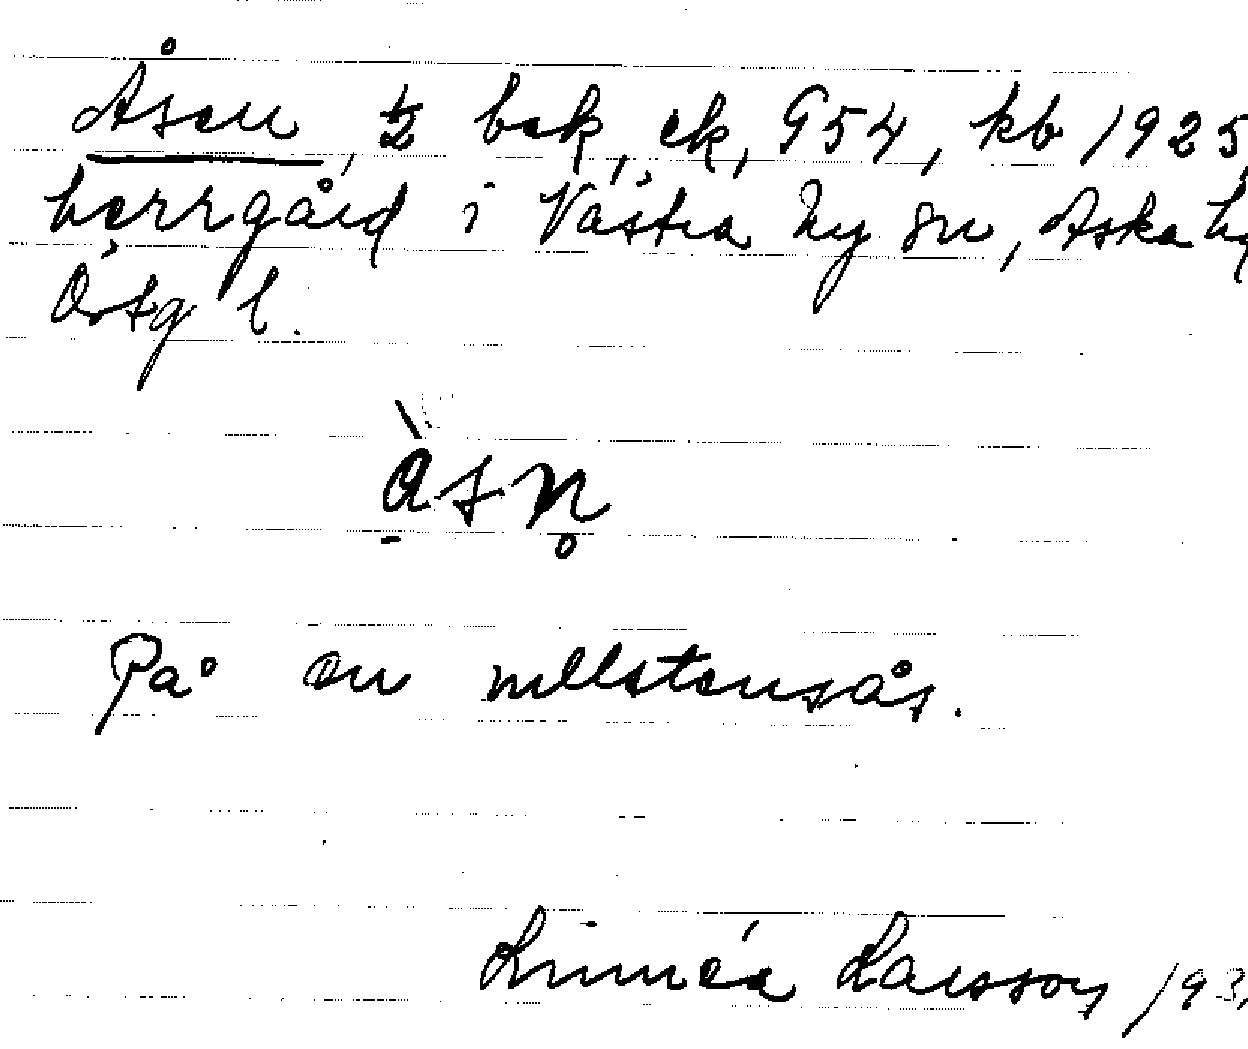 Åsen, ½ bek, ek, G54, kb 1925,
herrgård i Västra Ny sn, Aska h
Östg l.
àsn̥
På en rullstensås.
Linnéa Larsson 193